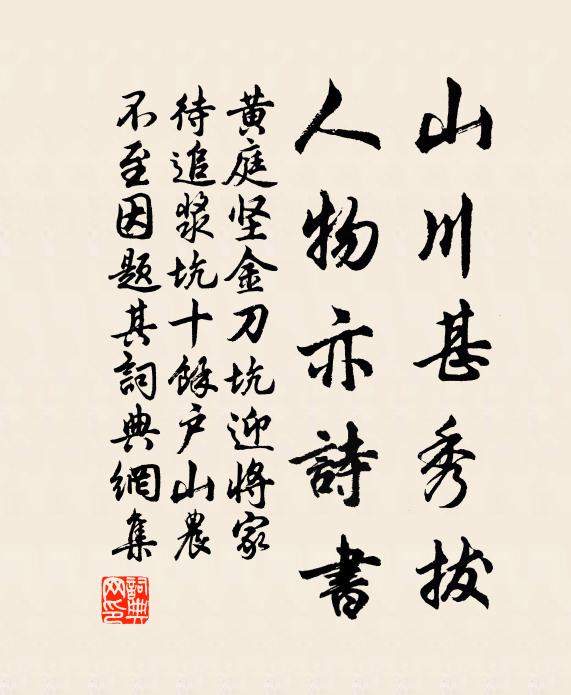 山川甚秀拔
人物亦詩書
黄庭坚金刀坑迎将家
待追浆坑十餘户山農
不至因题其詞典網集
詞典
网印